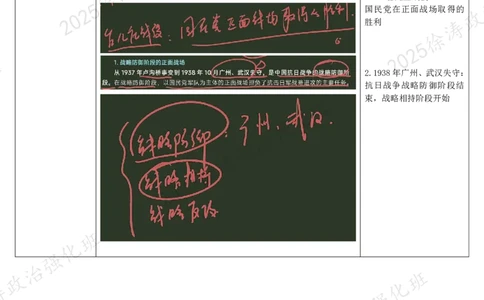 国民党在正面战场取得的
胜利
台儿庄战役：国民党正面战场取得的胜利
1. 战略防御阶段的正面战场
从 1937 年卢沟桥事变到 1938 年 10 月广州、武汉失守，是中国抗日战争的战略防御阶
段。在战略防御阶段，以国民党军队为主体的正面战场担负了抗击日军战略进攻的主要任务。
2.1938年广州、武汉失守：
抗日战争战略防御阶段结
束，战略相持阶段开始
战略防御：广州、武汉
战略相持
战略反攻
2025徐涛政
2025徐涛政
政治强化班
强化班